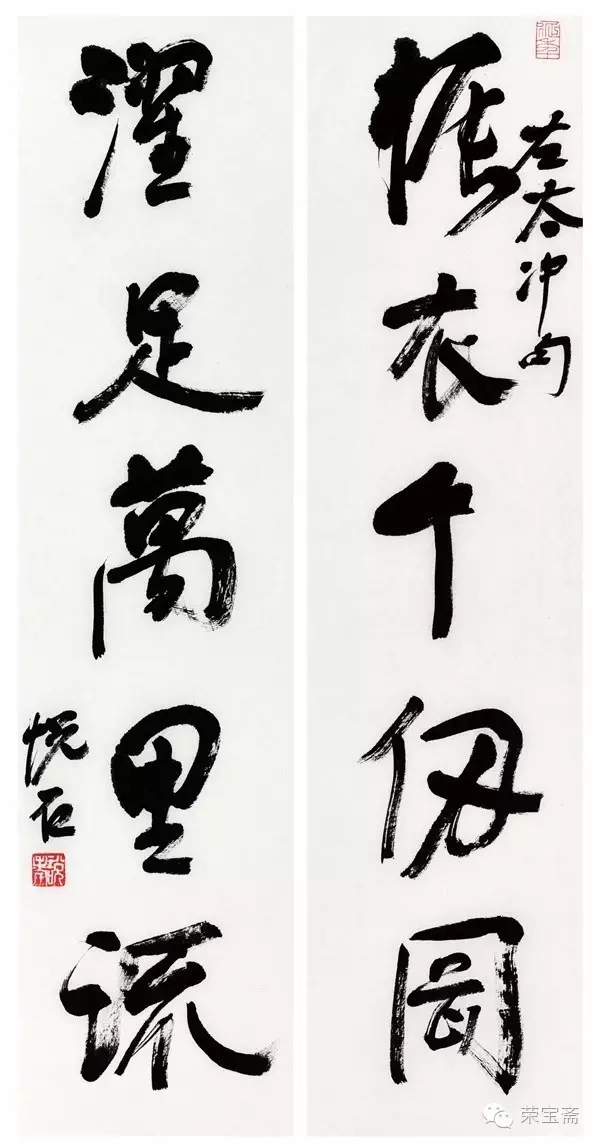 左太冲句
振衣千仞冈
濯足萬里流
悦石
荣宝斋